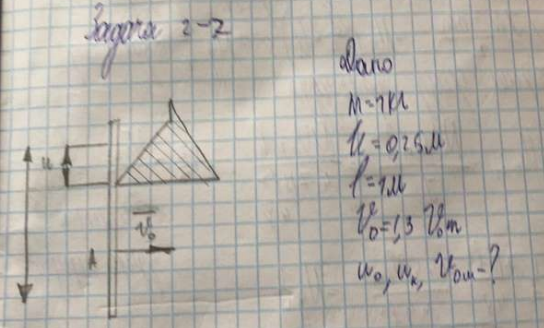 Задача 2-2
Дано
M=1кг
h=0,25м
l=1м
V₀=1,3 V₀m
u₀, uₖ, V₀m-?
h
V₀
A